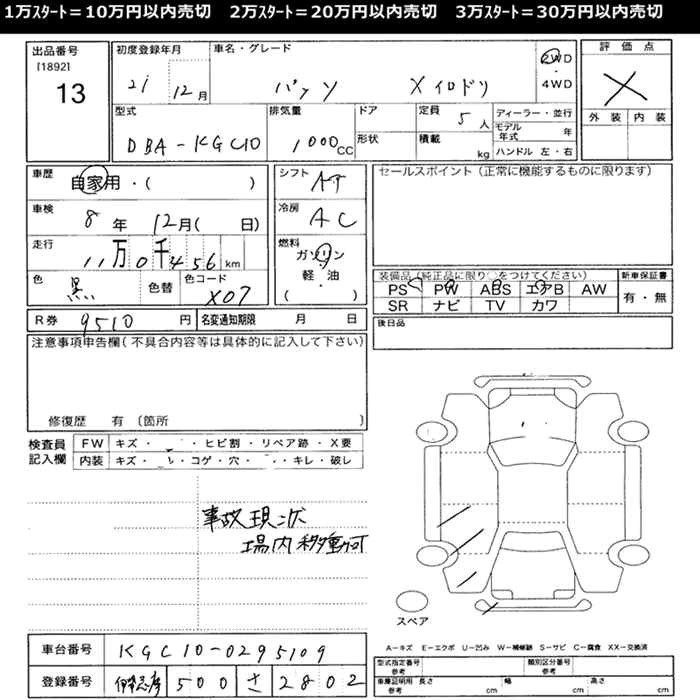 1万ｽﾀｰﾄ＝10万円以内売切　2万ｽﾀｰﾄ＝20万円以内売切　3万ｽﾀｰﾄ＝30万円以内売切
出品番号 [1892] 13
初度登録年月 21 12月
車名・グレード パッソ X イロドリ 2WD・4WD
評価点 X
外装 内装
型式 DBA-KGC10
排気量 1000CC
ドア
形状
定員 5人
積載 kg
ディーラー・並行
モデル年式 年
ハンドル 左・右
車歴 自家用・( )
シフト AT
車検 8年 12月( 日)
冷房 AC
走行 11万0千456km
燃料 ガソリン 軽・油 ( )
色 黒 色替 色コード X07
セールスポイント(正常に機能するものに限ります)
装備品(純正品に限り○をつけてください)
PS PW ABS エアB AW
SR ナビ TV カワ
新車保証書 有・無
R券 9510円
名変通知期限 月 日
後日品
注意事項申告欄(不具合内容等は具体的に記入して下さい)
修復歴 有 [箇所
検査員記入欄
FW キズ・ ・ヒビ割・リペア跡・X要
内装 キズ・ ・コゲ・穴・ ・キレ・破レ
事故現状
場内移動可
スペア
A－キズ E－エクボ U－凹み W－補修跡 S－サビ C－腐食 XX－交換済
車台番号 KGC10-0295109
登録番号 伊勢志摩 500 さ 2802
型式指定番号 参考
類別区分番号 参考
車庫証明用 参考 長さ cm 幅 cm 高さ cm